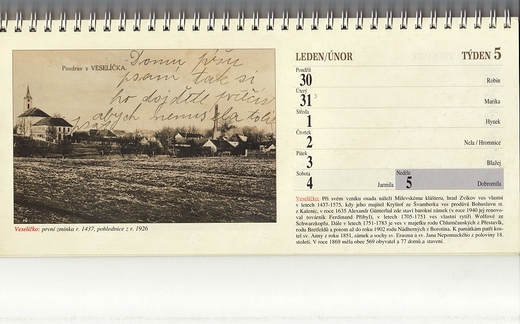 Pozdrav z VESELÍČKA.
Domu píšu
psam tak si
ho dojděte
abych nemusela
Veselíčko: první zmínka r. 1437, pohlednice z r. 1926
LEDEN/ÚNOR TÝDEN 5
Pondělí
30 Robin
Úterý
31 Marika
Středa
1 Hynek
Čtvrtek
2 Nela / Hromnice
Pátek
3 Blažej
Sobota
4 Jarmila
Neděle
5 Dobromila
Veselíčko: Při svém vzniku osada náleží Milevskému klášteru, hrad Zvíkov ves vlastní
v letech 1437-1575, kdy jeho majitel Kryštof ze Švamberka ves prodává Bohuslavu st.
z Kalenic, v roce 1635 Alexandr Günterhal zde staví barokní zámek (v roce 1940 jej renovo-
val továrník Ferdinand Přibyl), v letech 1705-1751 ves vlastní rytíři Wolfové ze
Schwarzkoglu. Dále v letech 1751-1783 je ves v majetku rodu Chlumčanských z Přestavlk,
rodu Breifeldů a potom až do roku 1902 rodu Nádherných z Borotína. K památkám patří kos-
tel sv. Anny z roku 1851, zámek a sochy sv. Erasma a sv. Jana Nepomuckého z poloviny 18.
století. V roce 1869 měla obec 569 obyvatel a 77 domů a stavení.